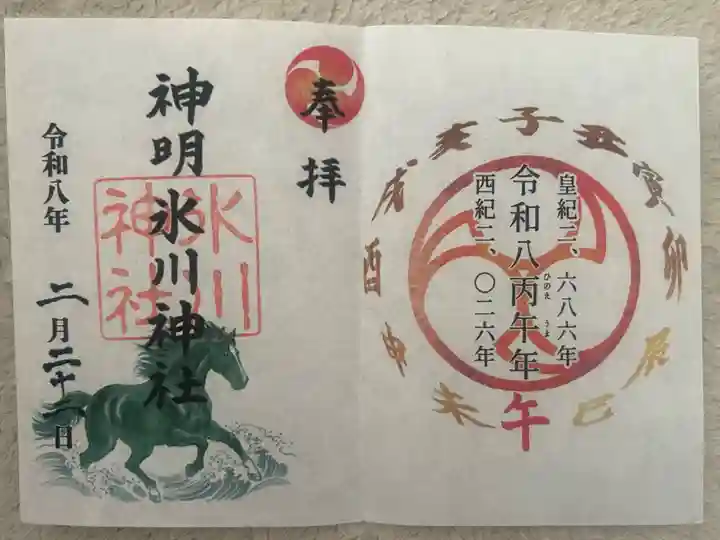 皇紀二、六八六年
令和八丙午年
ひのえ うま
西紀二、〇二六年
子
丑
寅
卯
辰
巳
午
未
申
酉
戌
亥
奉拝
神明氷川神社
氷川
神社
令和八年 二月二十二日